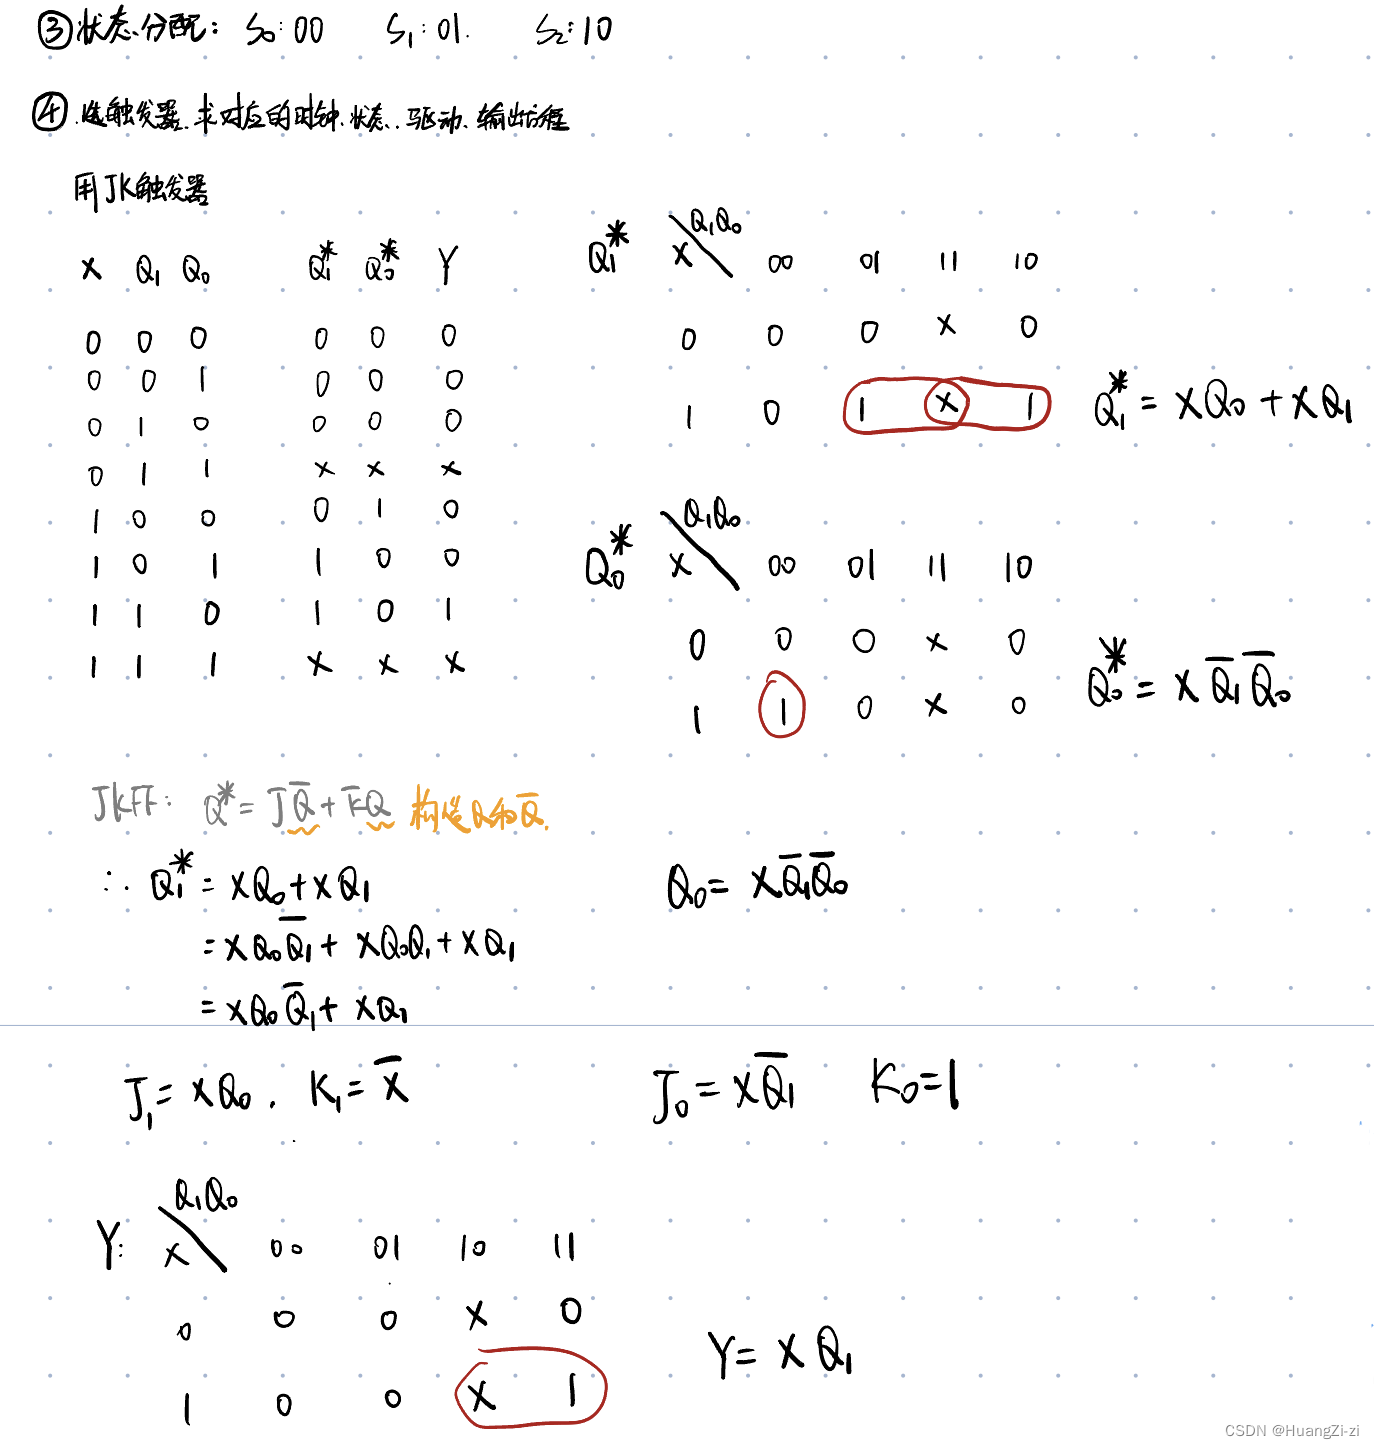 ③状态分配: S₀:00 S₁:01. S₂:10
④.选触发器.求对应的时钟.状态..驱动.输出方程
用JK触发器
X Q₁ Q₀ Q₁* Q₀* Y
0 0 0 0 0 0
0 0 1 0 0 0
0 1 0 0 0 0
0 1 1 × × ×
1 0 0 0 1 0
1 0 1 1 0 0
1 1 0 1 0 1
1 1 1 × × ×
Q₁* X Q₁Q₀ 00 01 11 10
0 0 0 × 0
1 0 1 × 1
Q₁* = XQ₀ + XQ₁
Q₀* X Q₁Q₀ 00 01 11 10
0 0 0 × 0
1 1 0 × 0
Q₀* = X Q̅₁ Q̅₀
JKFF: Q* = JQ̅ + K̅Q 构造Q和Q̅.
∴ Q₁* = XQ₀ + XQ₁
= XQ₀Q̅₁ + XQ₀Q₁ + XQ₁
= XQ₀Q̅₁ + XQ₁
Q₀ = XQ̅₁Q̅₀
J₁ = XQ₀. K₁ = X̅
J₀ = XQ̅₁ K₀ = 1
Y: X Q₁Q₀ 00 01 10 11
0 0 0 × 0
1 0 0 × 1
Y = XQ₁
CSDN @HuangZi-zi